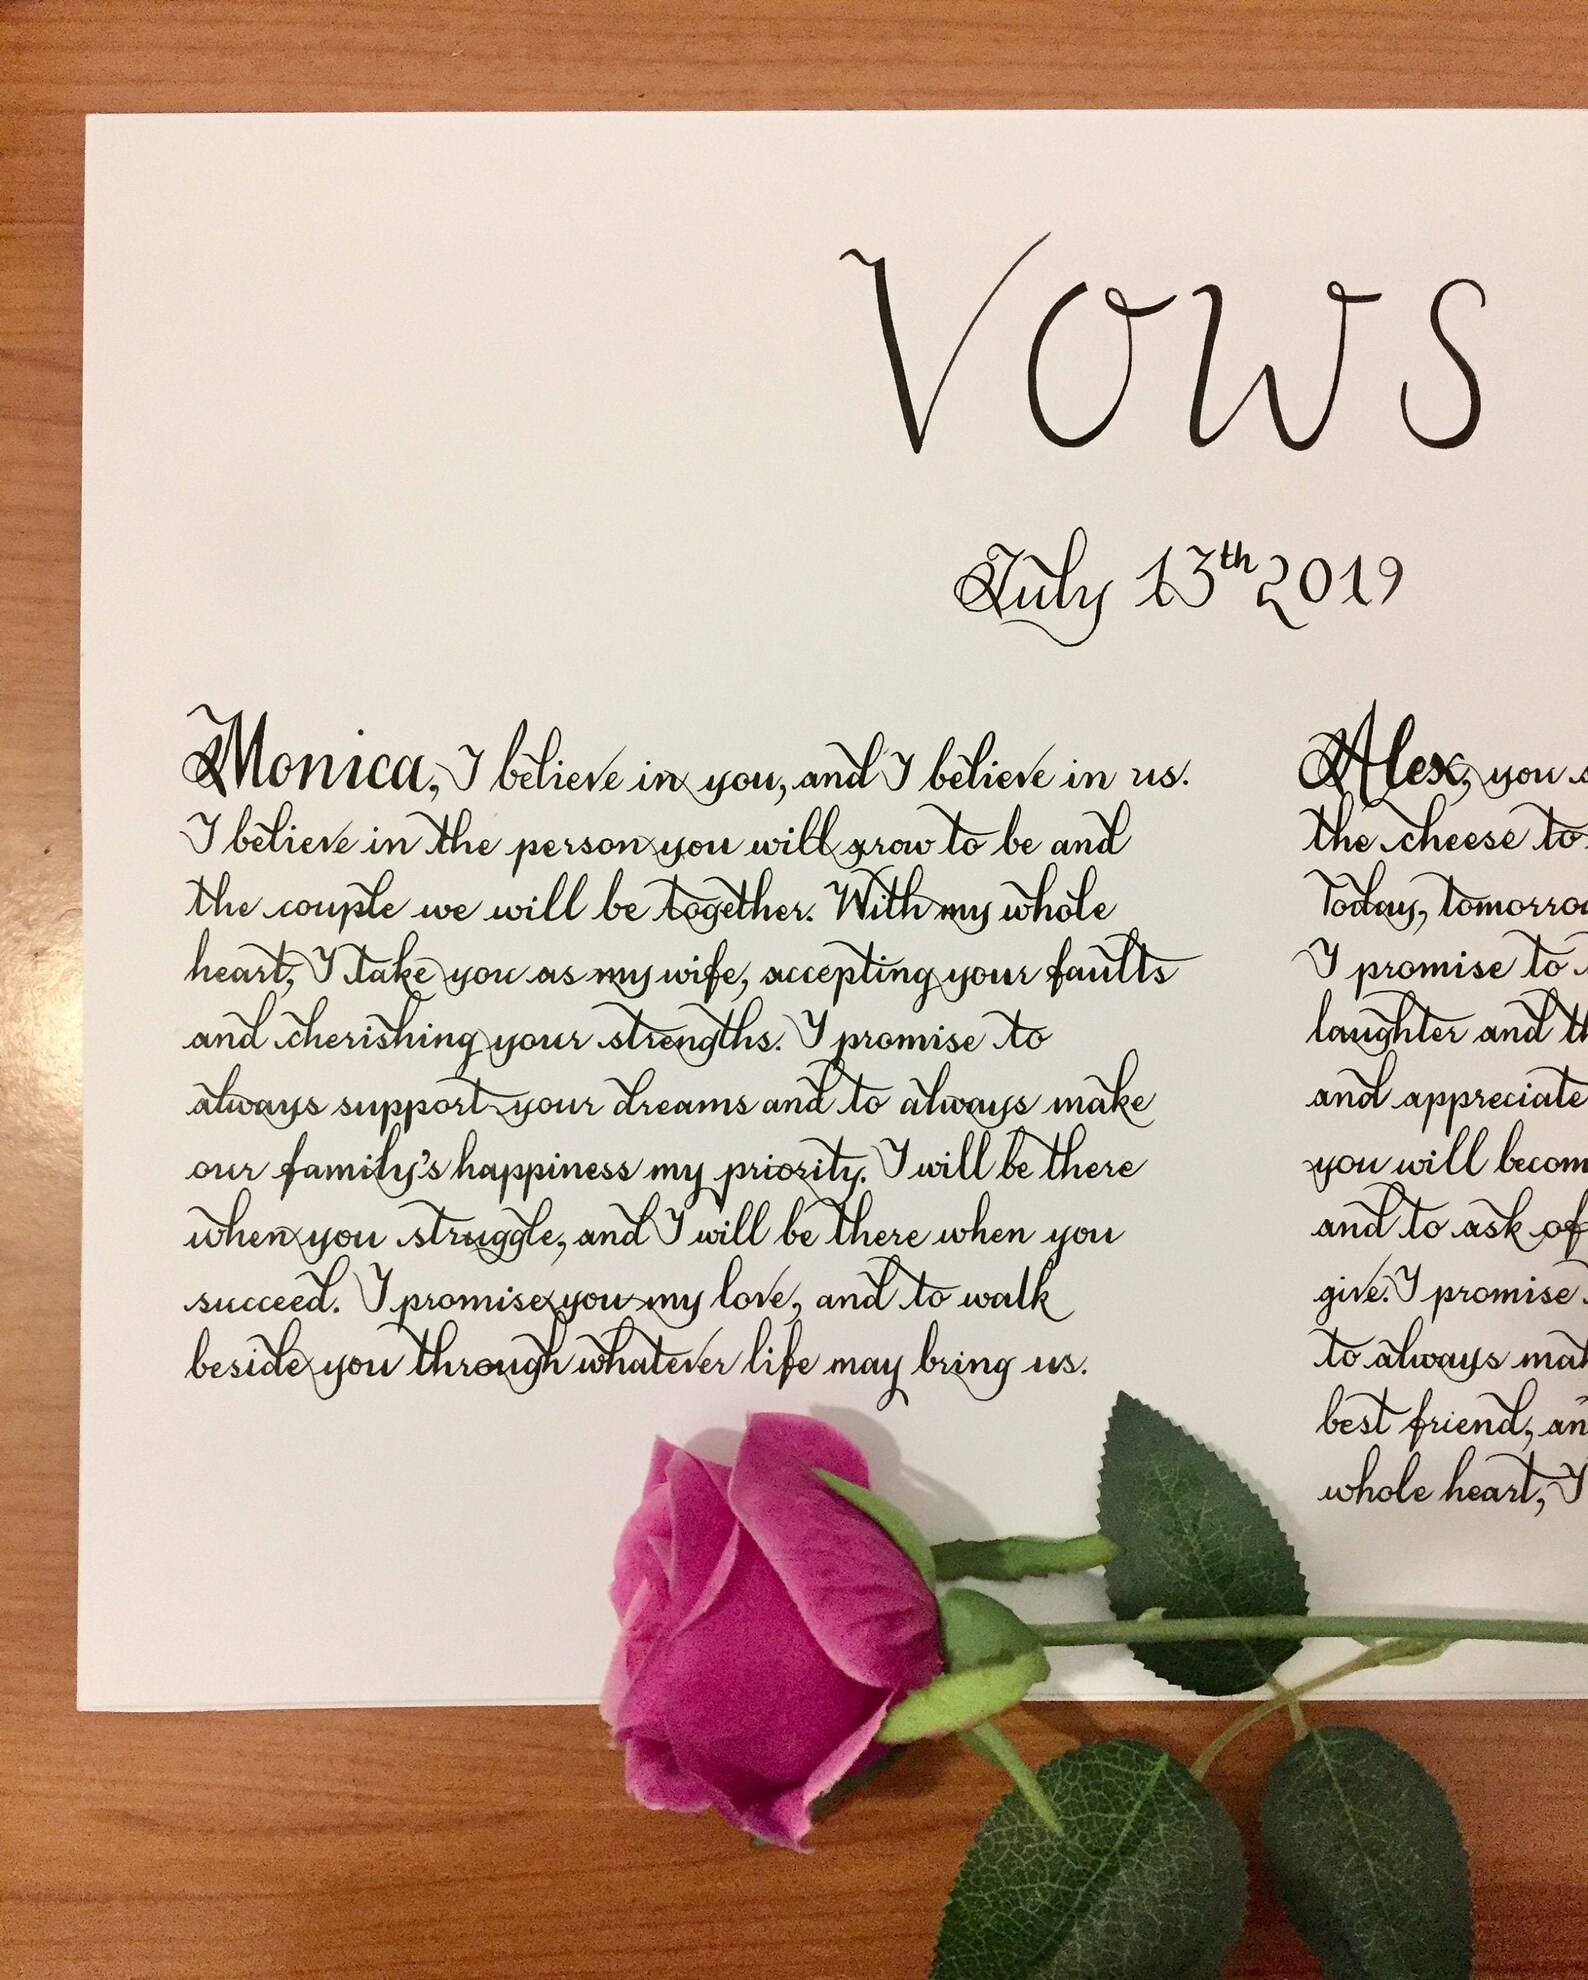 Vows
July 13th 2019
Monica, I believe in you, and I believe in us.
I believe in the person you will grow to be and
the couple we will be together. With my whole
heart, I take you as my wife, accepting your faults
and cherishing your strengths. I promise to
always support your dreams and to always make
our family's happiness my priority. I will be there
when you struggle, and I will be there when you
succeed. I promise you my love, and to walk
beside you through whatever life may bring us.
Alex, you
the cheese to
Today,
I promise to
laughter and
and appreciate
you will
and to ask of
give. I promise
to always
best friend,
whole heart, I